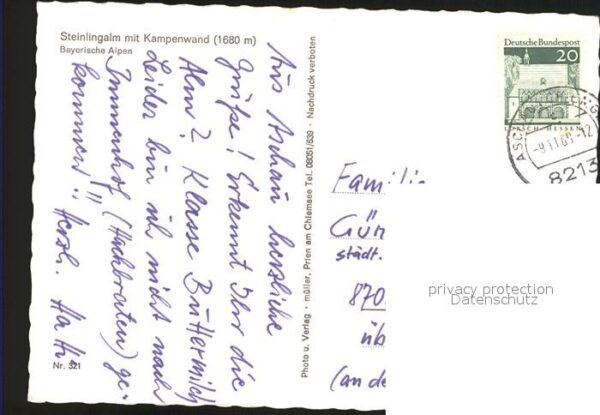 Steinlingalm mit Kampenwand (1680 m)
Bayerische Alpen
Aus Aschau herzliche
Grüße! Erkennt Ihr die
Alm? Klasse Buttermilch
Leider bin ich nicht nach
Immenhof (Hackbraten) ge-
kommen!! Herzl.
Nr. 321
Photo u. Verlag · müller, Prien am Chiemsee Tel. 08051/639 · Nachdruck verboten
Deutsche Bundespost
20
LORSCH · HESSEN
ASCHAU
-9.11.69-12
8213
Famili
Gün
städt.
870
üb
(an de
privacy protection
Datenschutz